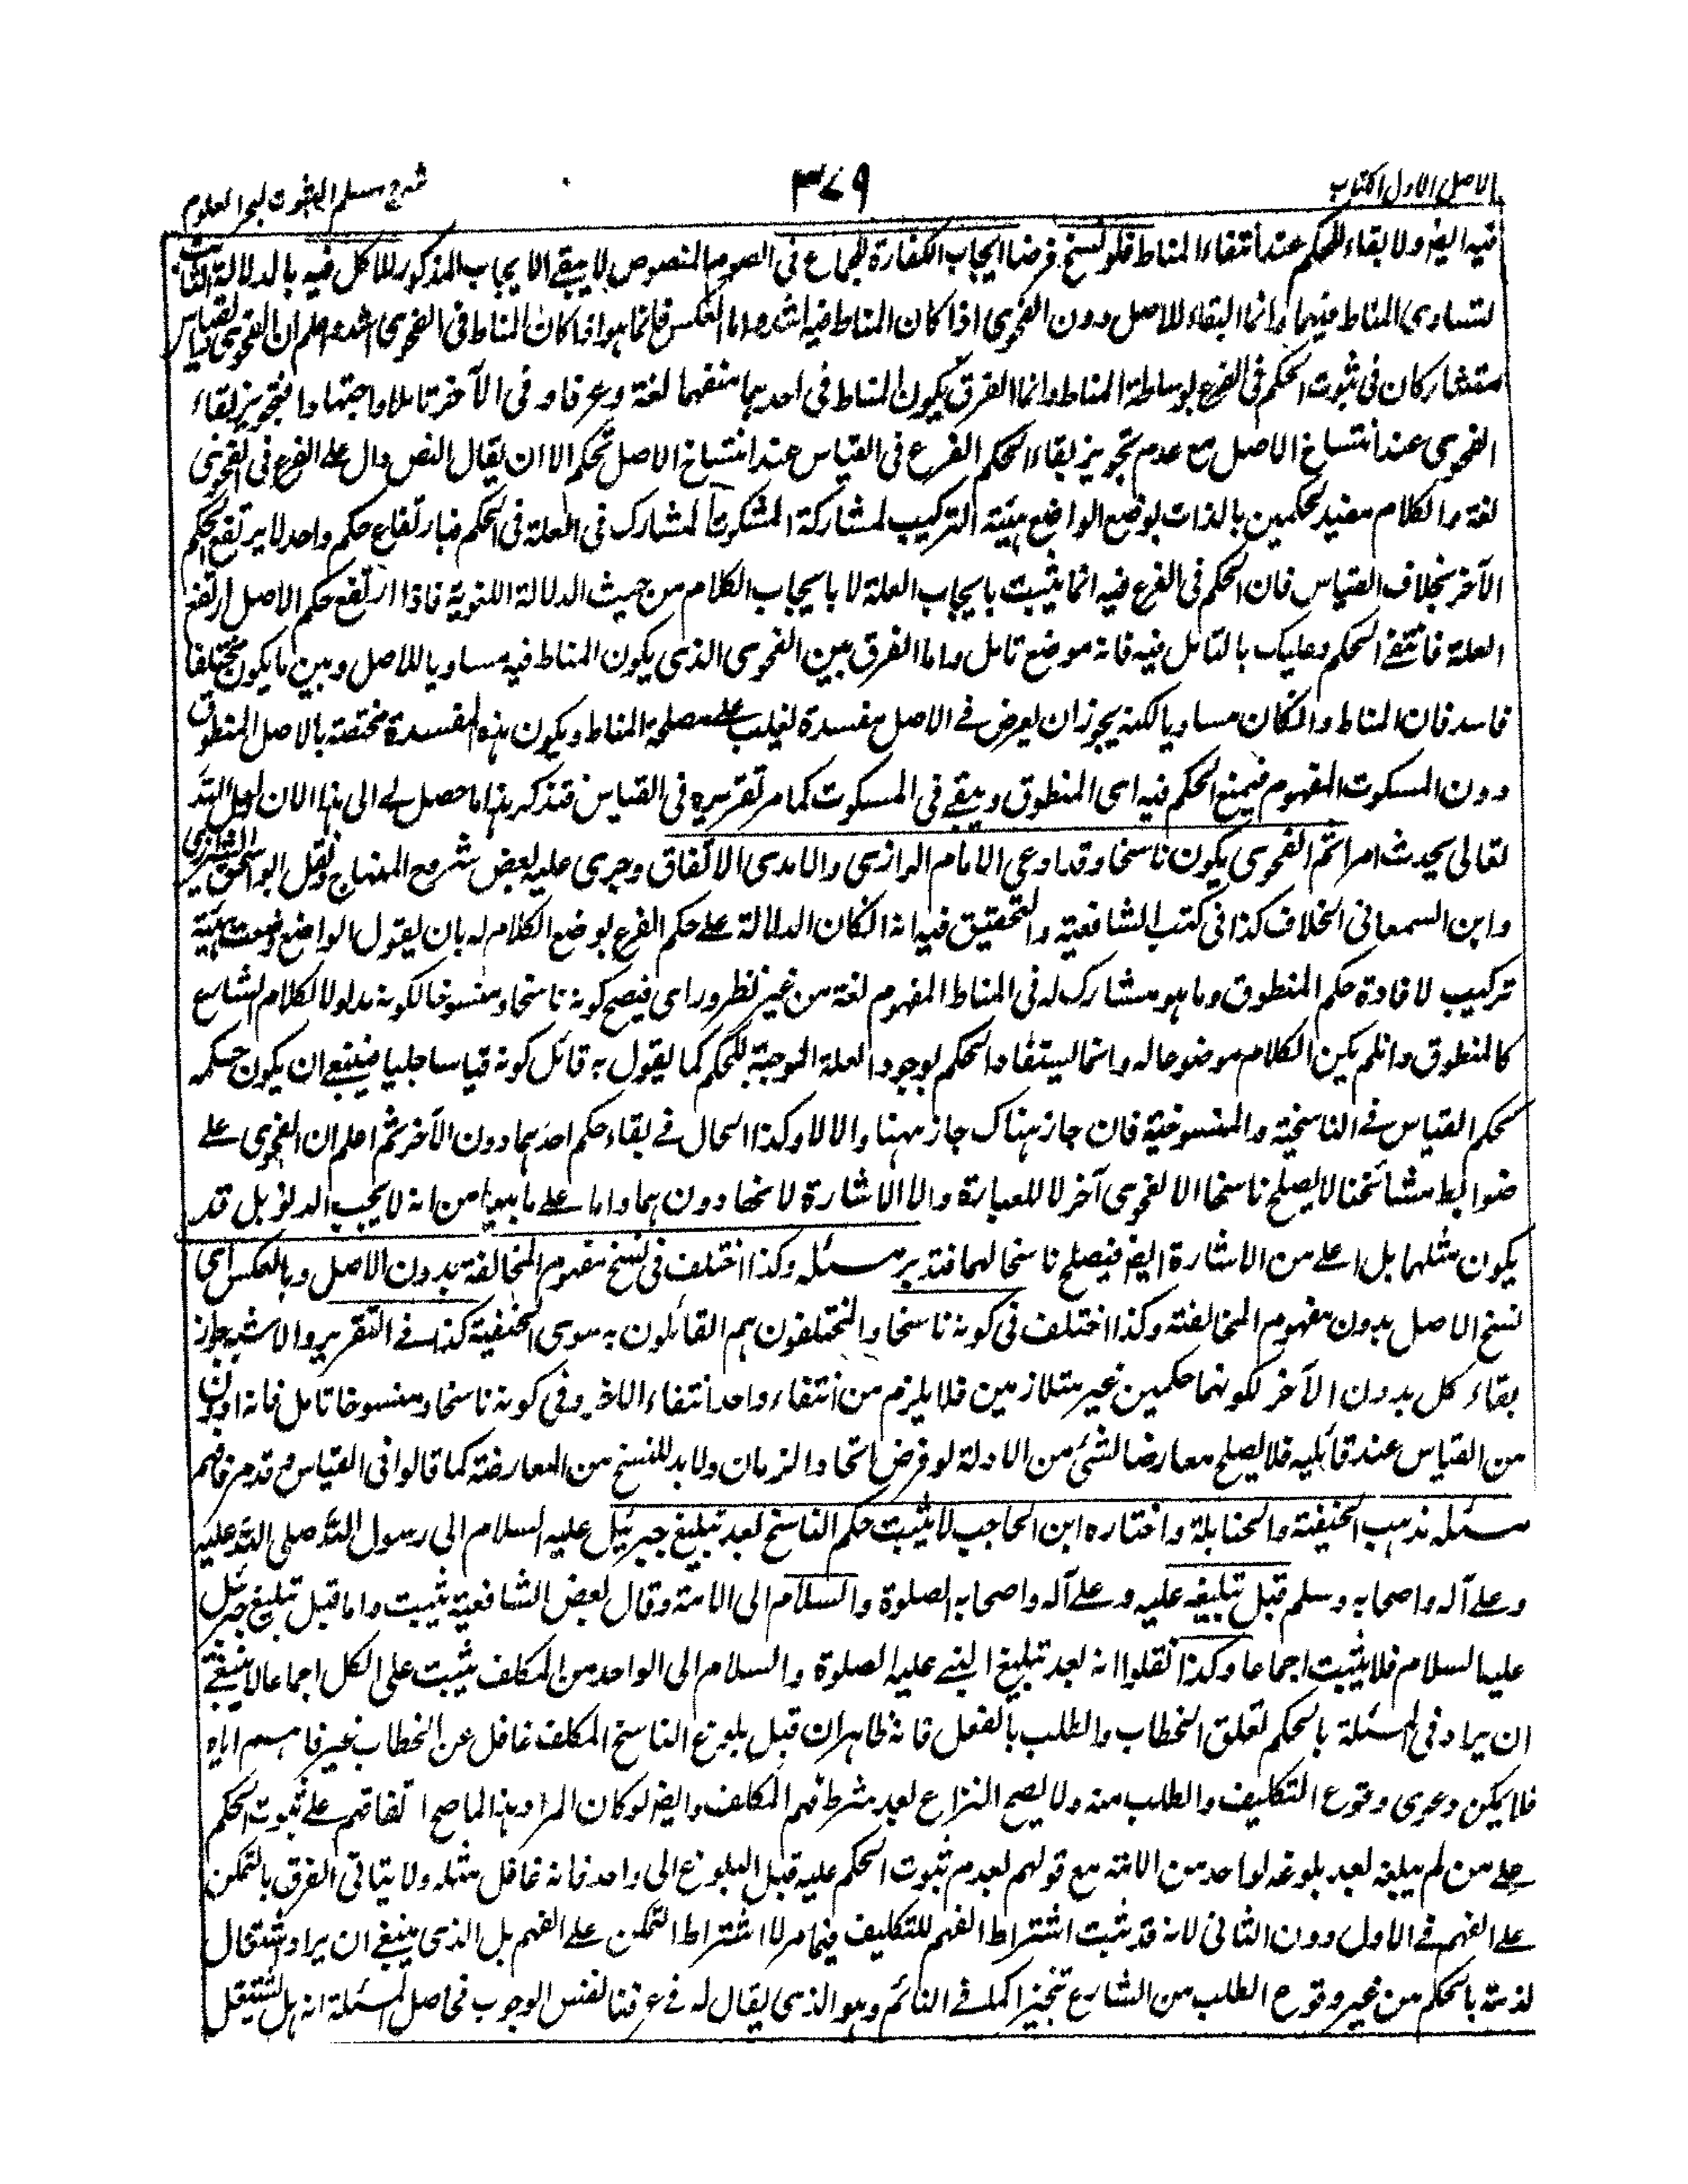 الاصل الاول الكتاب
٣٧٩
شرح مسلم الثبوت لبحر العلوم
فيه ايضا ولا بقاء للحكم عند انتفاء المناط فلو نسخ فرضا ايجاب الكفارة للجماع في الصوم المنصوص لا يبقے الايجاب المذكور للاكل فيه بالدلالة الثابت
لتساوى المناط فيهما وانما البقاء للاصل دون الفحوى اذا كان المناط فيه اشد واما العكس فانما هو اذا كان المناط فى الفحوى اشد واعلم ان الفحوى والقياس
متشاركان فى ثبوت الحكم فى الفرع بوساطة المناط وانما الفرق بكون المناط فى احدهما منفهما لغة وعرفا وفى الآخر تاملا واجتهادا فتجويز بقاء
الفحوى عند انتساخ الاصل مع عدم تجويز بقاء الحكم الفرع فى القياس عند انتساخ الاصل تحكم الا ان يقال النص دال علے الفرع فى الفحوى
لغة والكلام مفيد لحكمين بالذات بوضع الواضع هيئة التركيب لمشاركة المسكوت المشارك فى العلة فى الحكم فبارتفاع حكم واحد لا يرتفع الحكم
الآخر بخلاف القياس فان الحكم فى الفرع فيه انما يثبت بايجاب العلة لا بايجاب الكلام من حيث الدلالة اللغوية فاذا ارتفع حكم الاصل ارتفع
العلة فانتفے الحكم وعليك بالتامل فيه فانه موضع تامل واما الفرق بين الفحوى الذى يكون المناط فيه مساويا للاصل وبين ما يكون مختلفا
فاسد فان المناط وان كان مساويا لكنه يجوز ان يعرض فے الاصل مفسدة تغلب علے مصلحة المناط ويكون هذه المفسدة مختصة بالاصل المنطوق
دون المسكوت المفهوم فيمنع الحكم فيه اى المنطوق ويبقے فى المسكوت كما مر تقريره فى القياس فتذكر هذا ما حصل لے الى هذا الان لعل الله
تعالى يحدث امرا ثم الفحوى يكون ناسخا وقد ادعى الامام الرازى والآمدى الاتفاق وجرى عليه بعض شروح المنهاج ونقل ابو اسحق الشيرازى
وابن السمعانى الخلاف كذا فى كتب الشافعية والتحقيق فيه انه ان كان الدلالة علے حكم الفرع بوضع الكلام له بان يقول الواضع وضعت هيئة
تركيب لافادة حكم المنطوق وما هو مشارك له فى المناط المفهوم لغة من غير نظر وراى فيصح كونه ناسخا ومنسوخا لكونه مدلولا لكلام الشارع
كالمنطوق وان لم يكن الكلام موضوعا له وانما يستفاد الحكم لوجود العلة الموجبة للحكم كما يقول به قائل كونه قياسا جليا فينبغے ان يكون حكمه
حكم القياس فے الناسخية والمنسوخية فان جاز هناك جاز ههنا والا لا وكذا الحال فے بقاء حكم احدهما دون الآخر ثم اعلم ان الفحوى علے
ضوابط مشائخنا لا يصلح ناسخا الا لفحوى آخر لا للعبارة والا الاشارة لانها دونهما واما علے ما بينا من انه لا يجب الدلو بل قد
يكون مثلهما بل اعلے من الاشارة ايضا فيصلح ناسخا لهما فتدبر مسئله وكذا اختلف فى نسخ مفهوم المخالفة بدون الاصل وبالعكس اى
نسخ الاصل بدون مفهوم المخالفة وكذا اختلف فى كونه ناسخا والمختلفون هم القائلون به سوى الحنفية كذا فے التقرير والاشبه جواز
بقاء كل بدون الآخر لكونهما حكمين غير متلازمين فلا يلزم من انتفاء واحد انتفاء الاخر وفى كونه ناسخا ومنسوخا تامل فانه ادون
من القياس عند قائليه فلا يصلح معارضا لشئ من الادلة لو فرض اتحاد الزمان ولا بد للنسخ من المعارضة كما قالوا فى القياس وقد مر فافهم
مسئله مذهب الحنفية والحنابلة واختاره ابن الحاجب لا يثبت حكم الناسخ بعد تبليغ جبرئيل عليه السلام الى رسول الله صلى الله عليه
وعلے آله واصحابه وسلم قبل تبليغه عليه وعلے آله واصحابه الصلوة والسلام الى الامة وقال بعض الشافعية يثبت واما قبل تبليغ جبرئيل
عليه السلام فلا يثبت اجماعا وكذا نقلوا انه بعد تبليغ النبے عليه الصلوة والسلام الى الواحد من المكلف يثبت على الكل اجماعا لا ينبغے
ان يراد فى المسئلة بالحكم تعلق الخطاب والطلب بالفعل فانه ظاهر ان قبل بلوغ الناسخ المكلف غافل عن الخطاب غير فاهم اياه
فلا يمكن دعوى وقوع التكليف والطلب منه ولا يصح النزاع بعد شرط فهم المكلف وايضا لو كان المراد هذا لما صح اتفاقهم علے ثبوت الحكم
علے من لم يبلغه بعد بلوغه لواحد من الامة مع قولهم بعدم ثبوت الحكم عليه قبل البلوغ الى واحد فانه غافل مثله ولا يتاتى الفرق بالتمكن
علے الفهم فے الاول دون الثانى لانه قد ثبت اشتراط الفهم للتكليف فيما مر لا اشتراط التمكن علے الفهم بل الذى ينبغے ان يراد اشتغال
لذمة بالحكم من غير وقوع الطلب من الشارع تنجيزا كما فے النائم وهو الذى يقال له فے عرفنا نفس الوجوب فحاصل المسئلة انه هل تشتغل